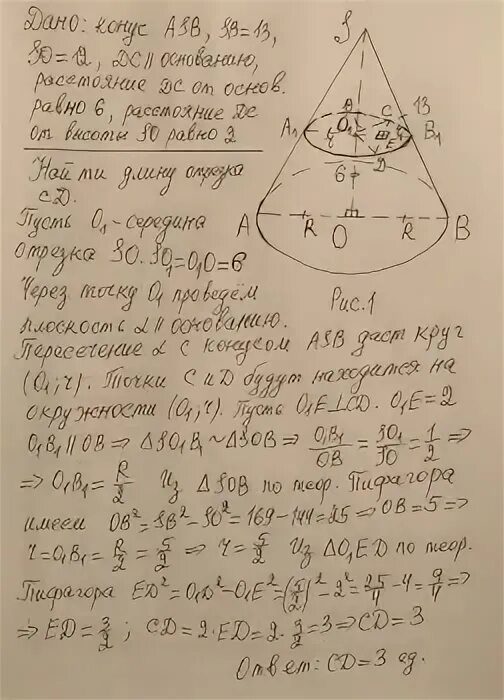 Дано: конус ASB, SB=13,
SO=12, DC∥основанию,
расстояние DC от основ.
равно 6, расстояние DC
от высоты SO равно 2
Найти длину отрезка
CD.
Пусть O₁-середина
отрезка SO. SO₁=O₁O=6
Через точку O₁ проведём
плоскость α∥основанию.
Пересечение α с конусом ASB даст круг
(O₁;r). Точки C и D будут находится на
окружности (O₁;r). Пусть O₁E⊥CD. O₁E=2
O₁B₁∥OB ⇒ ΔSO₁B₁~ΔSOB ⇒ O₁B₁/OB = SO₁/SO = 1/2 ⇒
⇒ O₁B₁=R/2 Из ΔSOB по теор. Пифагора
имеем OB²=SB²-SO²=169-144=25⇒OB=5⇒
r=O₁B₁=R/2=5/2 ⇒ r=5/2 Из ΔO₁ED по теор.
Пифагора ED²=O₁D²-O₁E²=(5/2)²-2²=25/4-4=9/4⇒
⇒ ED=3/2; CD=2·ED=2·3/2=3⇒CD=3
Ответ: CD=3 ед.
S
A₁
O₁
C
13
B₁
E
D
r
6
A
R
O
R
B
Рис.1